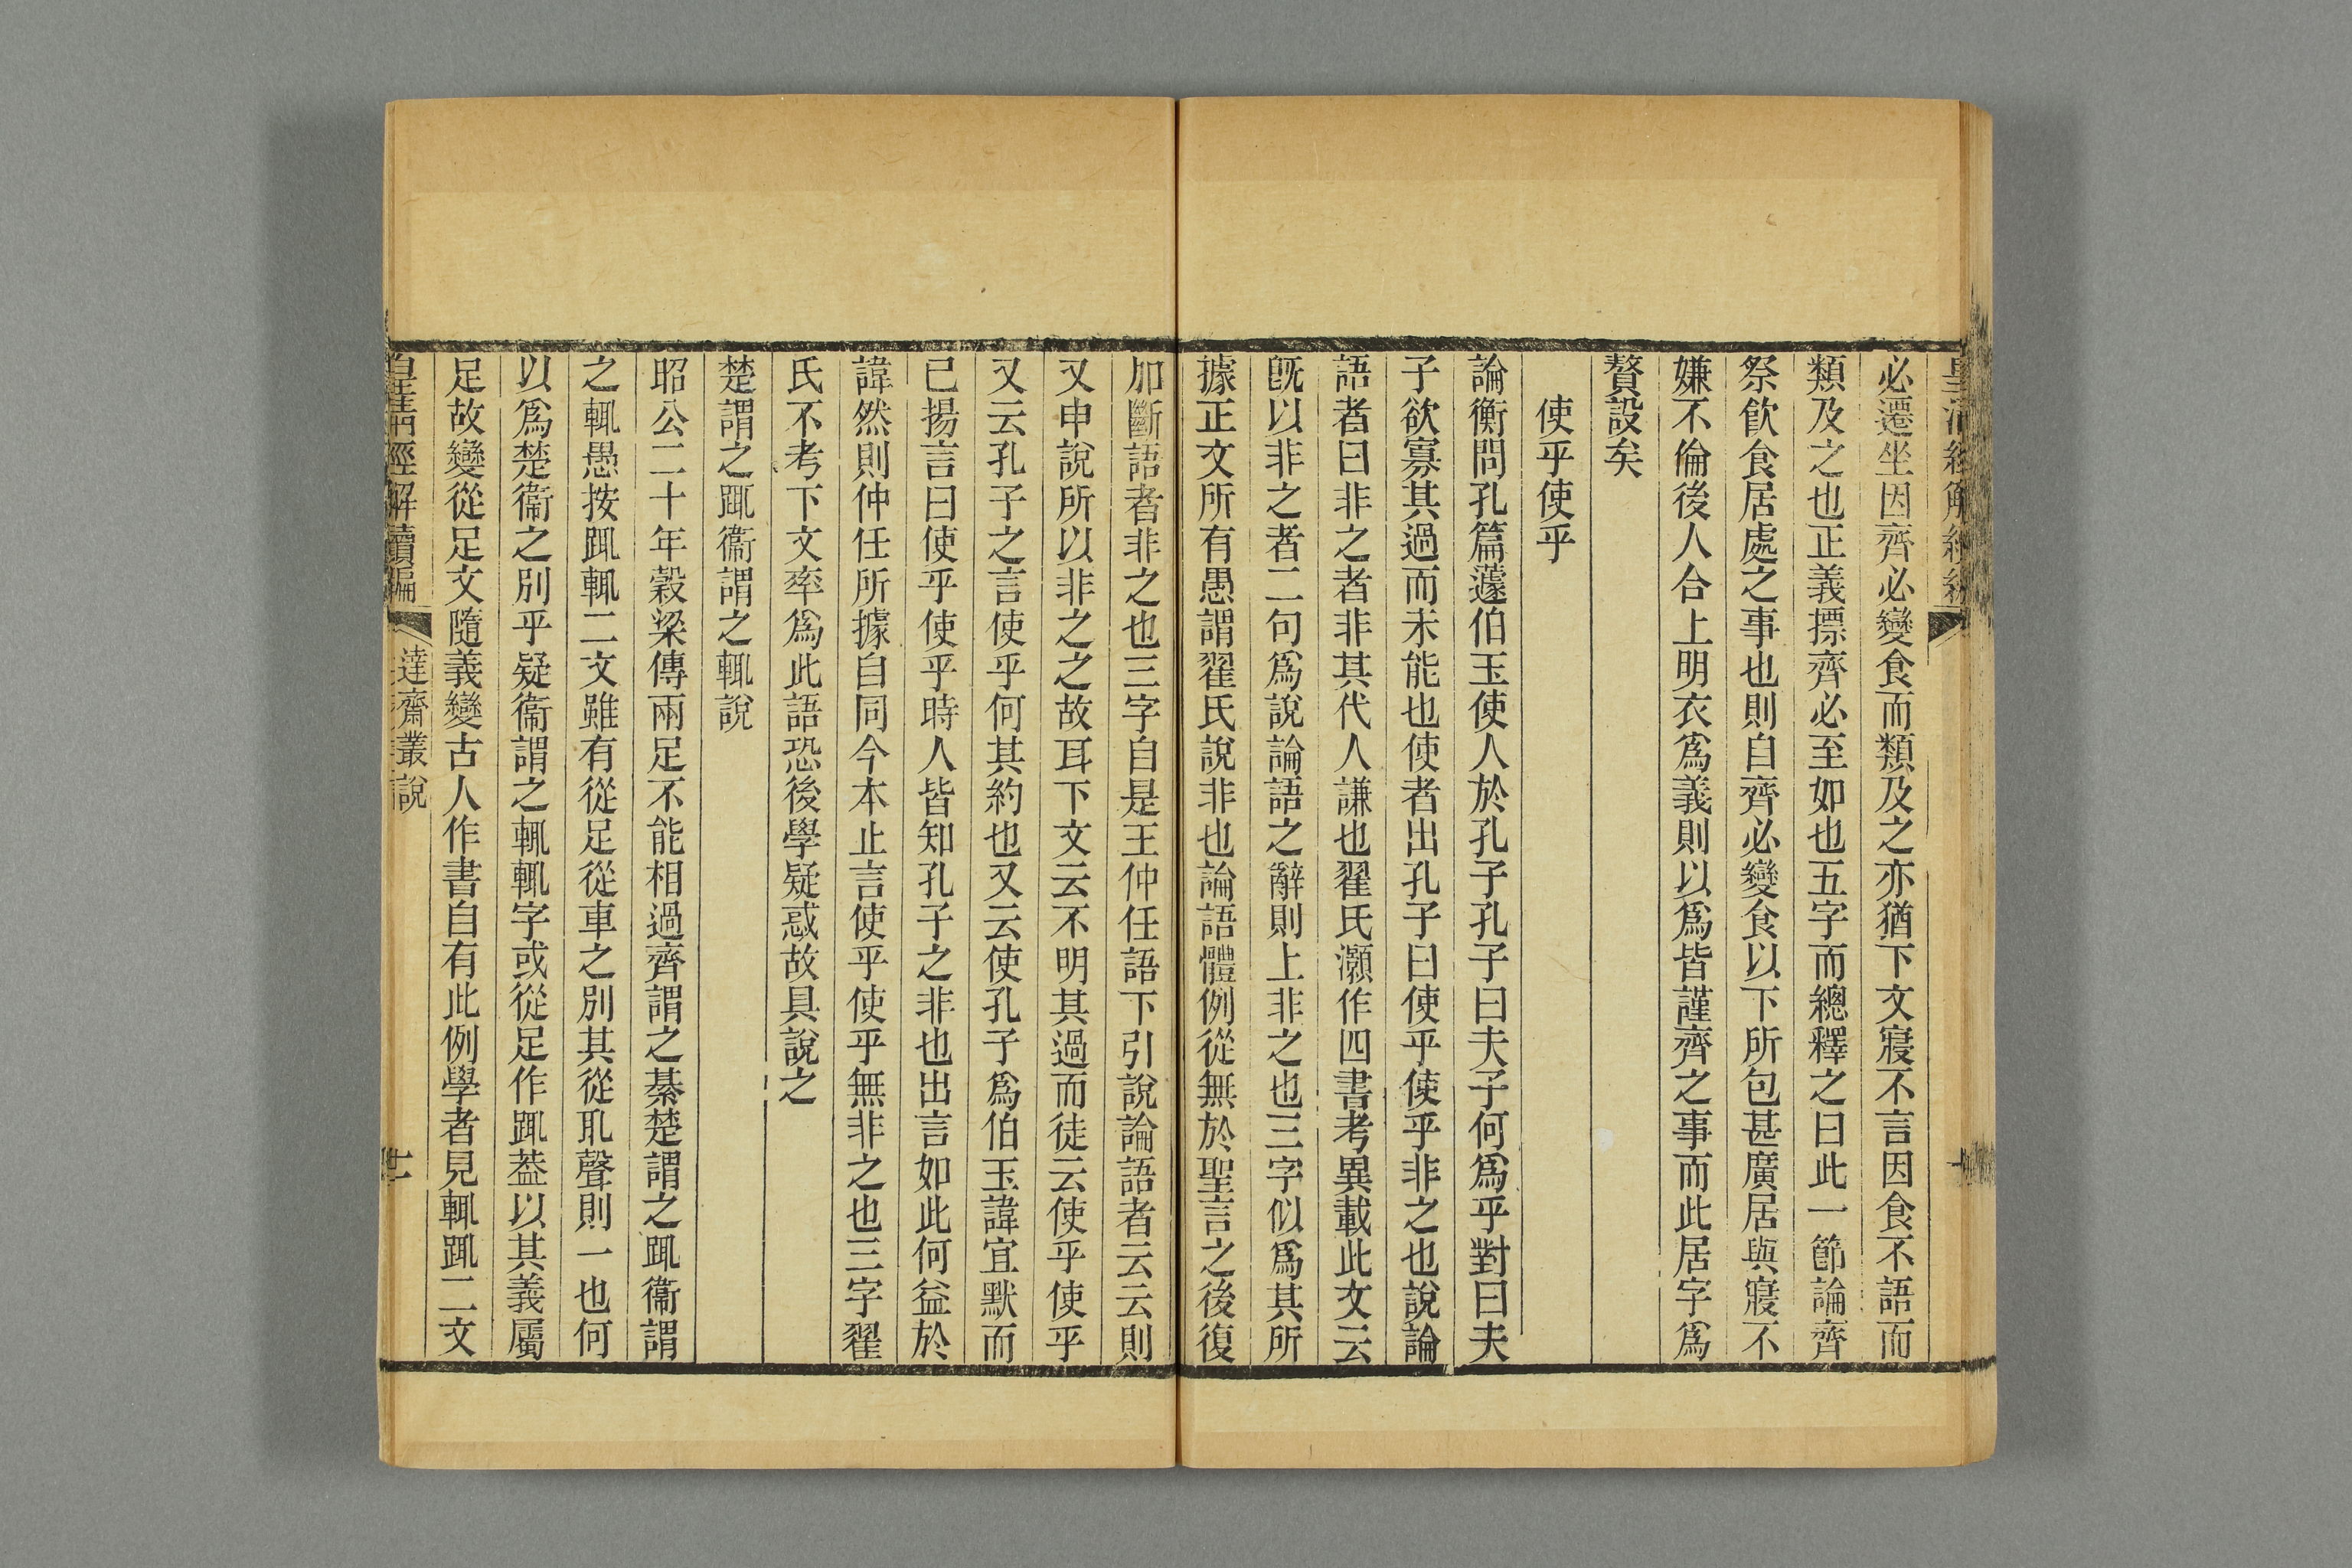 必遷坐因齊必變食而類及之亦猶下文寢不言因食不語而
類及之也正義摽齊必至如也五字而總釋之曰此一節論齊
祭飮食居處之事也則自齊必變食以下所包甚廣居與寢不
嫌不倫後人合上明衣爲義則以爲皆謹齊之事而此居字爲
贅設矣
使乎使乎
論衡問孔篇蘧伯玉使人於孔子孔子曰夫子何爲乎對曰夫
子欲寡其過而未能也使者出孔子曰使乎使乎非之也說論
語者曰非之者非其代人謙也翟氏灝作四書考異載此文云
旣以非之者二句爲說論語之辭則上非之也三字似爲其所
據正文所有愚謂翟氏說非也論語體例從無於聖言之後復
加斷語者非之也三字自是王仲任語下引說論語者云云則
又申說所以非之之故耳下文云不明其過而徒云使乎使乎
又云孔子之言使乎何其約也又云使孔子爲伯玉諱宜默而
已揚言曰使乎使乎時人皆知孔子之非也出言如此何益於
諱然則仲任所據自同今本止言使乎使乎無非之也三字翟
氏不考下文率爲此語恐後學疑惑故具說之
楚謂之踂衞謂之輒說
昭公二十年穀梁傳兩足不能相過齊謂之綦楚謂之踂衞謂
之輒愚按踂輒二文雖有從足從車之別其從耴聲則一也何
以爲楚衞之別乎疑衞謂之輒輒字或從足作踂葢以其義屬
足故變從足文隨義變古人作書自有此例學者見輒踂二文
皇淸經解續編
達齋叢說
十一